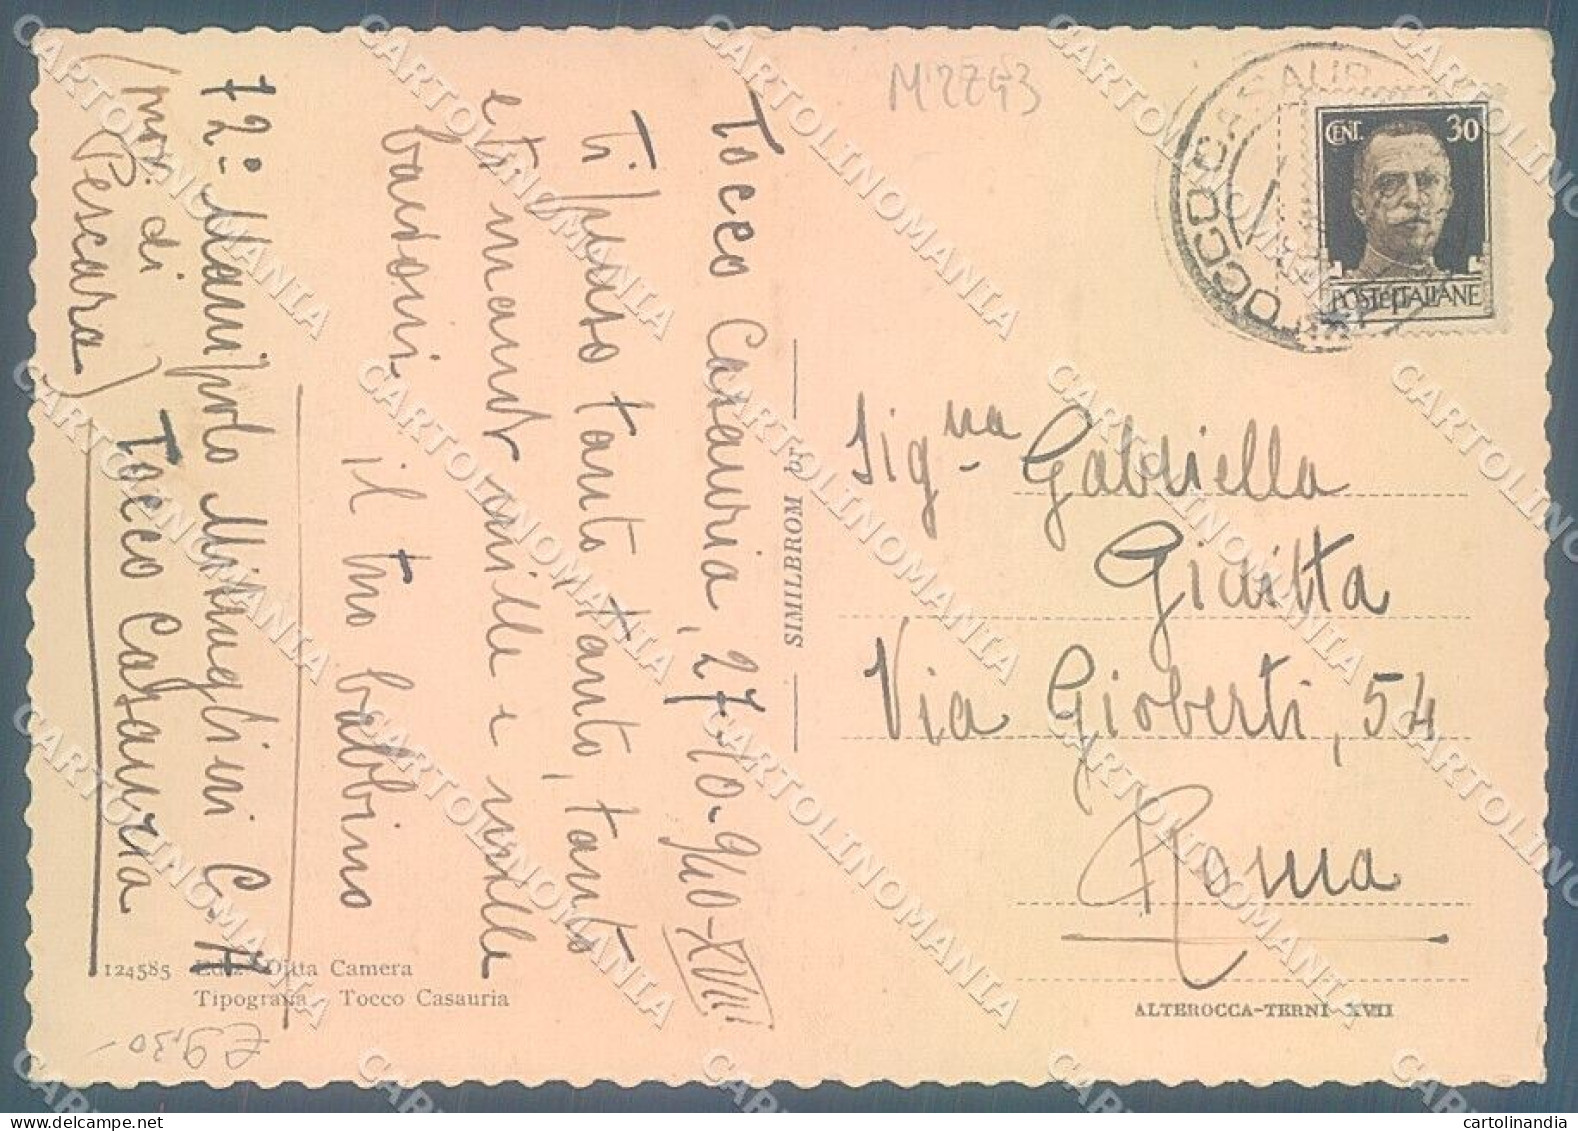 M'2243
TOCCO CASAUR
CENT. 30
POSTE ITALIANE
Tocco Casauria, 27-10-940-XVIII
Ti penso tanto, tanto, tanto, tanto
e ti mando mille e mille
bacioni.
il tuo babbino
72° Manipolo Mitraglieri C. A
Tocco Casauria
(prov. di
Pescara)
SIMILBROM br
Sig.na Gabriella
Giuitta
Via Gioberti, 54
Roma
124585 Ediz. Ditta Camera
Tipografia - Tocco Casauria
ALTEROCCA-TERNI XVII
€ 9,30-
CARTOLINOMANIA
cartolinandia